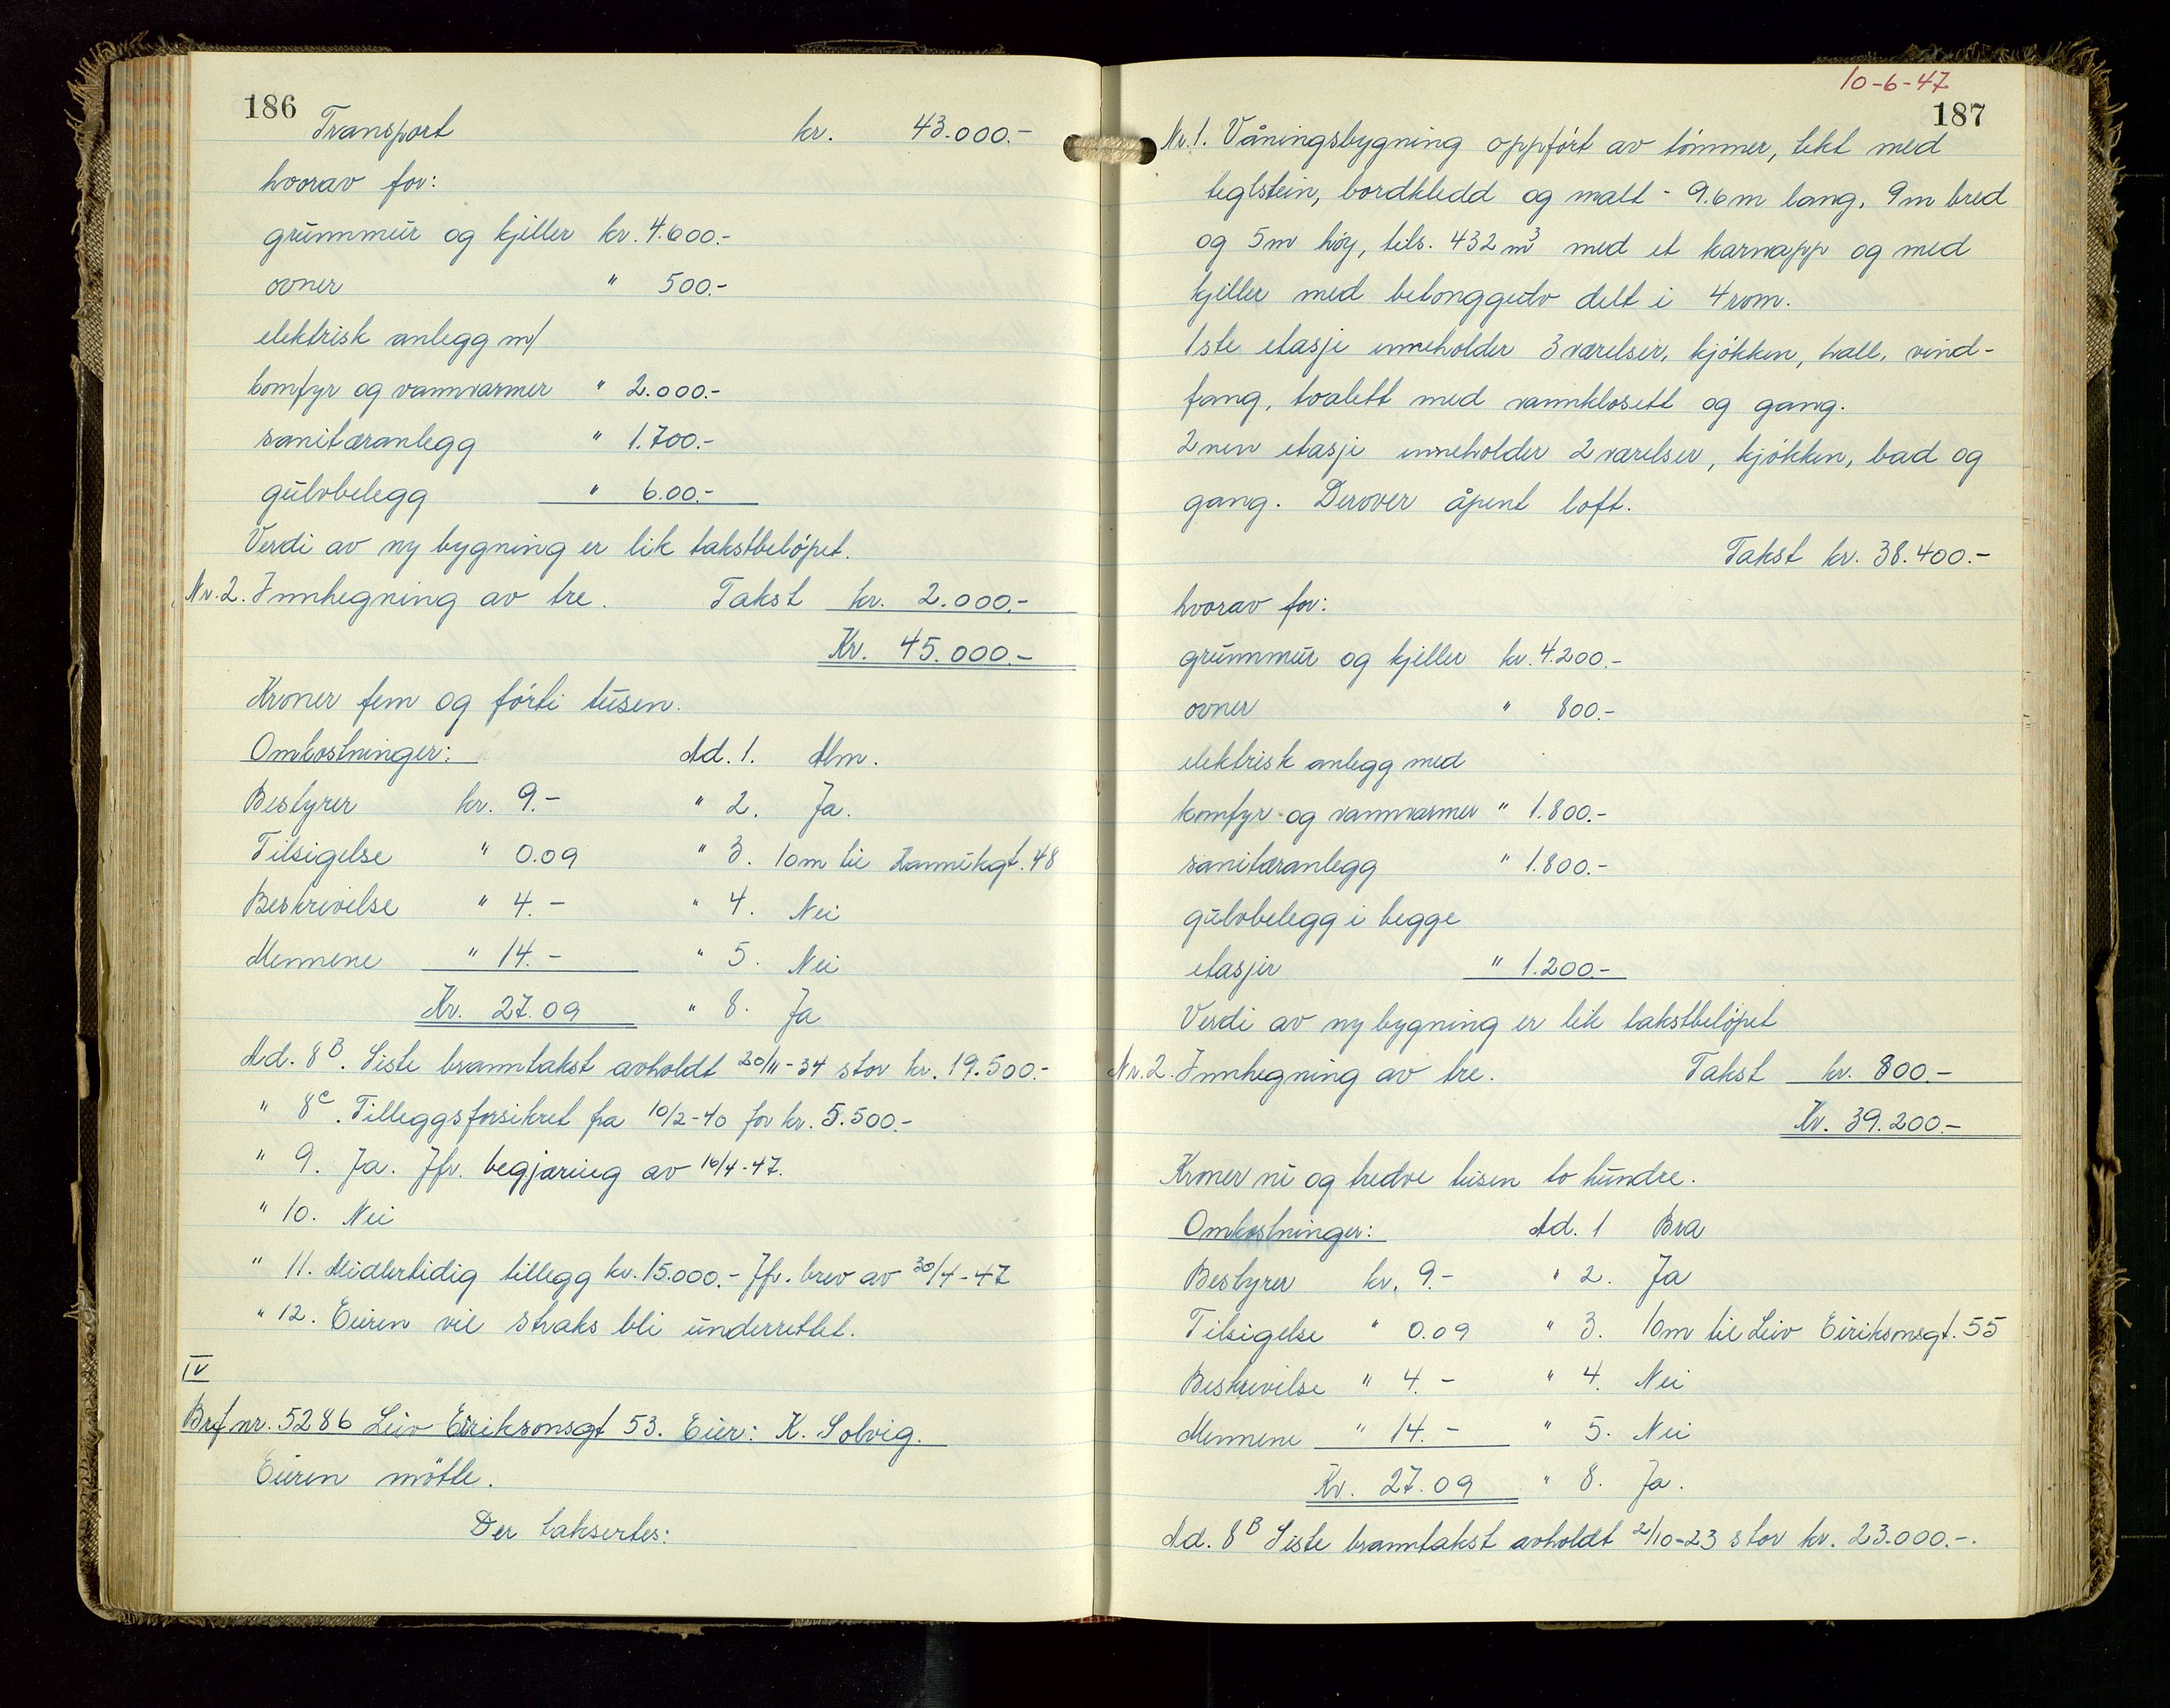 186
Transport kr. 43.000.-
hvorav for:
grunnmur og kjeller kr. 4.600.-
ovner " 500.-
elektrisk anlegg m/
komfyr og vannvarmer " 2.000.-
sanitæranlegg " 1.700.-
gulvbelegg " 6.00.-
Verdi av ny bygning er lik takstbeløpet.
Nr. 2. Innhegning av tre. Takst kr. 2.000.-
Kr. 45.000.-
Kroner fem og førti tusen.
Omkostninger: Ad. 1. Alm.
Bestyrer kr. 9.- " 2. Ja.
Tilsigelse " 0.09 " 3. 10m til 48
Beskrivelse " 4.- " 4. Nei
Mennene " 14.- " 5. Nei
Kr. 27.09 " 8. Ja
Ad. 8B. Siste branntakst avholdt 20/11-34 stor kr. 19.500.-
" 8c. Tilleggsforsikret fra 10/2-40 for kr. 5.500.-
" 9. Ja. Jfr. begjæring av 16/4-47.
" 10. Nei
" 11. Midlertidig tillegg kr. 15.000.- Jfr. brev av 30/4-47
" 12. Eieren vil straks bli underrettet.
IV
Brf nr. 5286 Leiv Eiriksonsgt 53. Eier: K. Solvig.
Eieren møtte.
Der taksertes:
10-6-47
187
Nr. 1. Våningsbygning oppført av tømmer, tekt med
teglstein, bordkledd og malt - 9.6m lang, 9m bred
og 5m høy, tils. 432 m³ med et karnapp og med
kjeller med betonggulv delt i 4 rom.
1ste etasje inneholder 3 værelser, kjøkken, hall, vind-
fang, toalett med vannklosett og gang.
2nen etasje inneholder 2 værelser, kjøkken, bad og
gang. Derover åpent loft.
Takst kr. 38.400.-
hvorav for:
grunnmur og kjeller kr. 4.200.-
ovner " 800.-
elektrisk anlegg med
komfyr og vannvarmer " 1.800.-
sanitæranlegg " 1.800.-
gulvbelegg i begge
etasjer " 1.200.-
Verdi av ny bygning er lik takstbeløpet
Nr. 2. Innhegning av tre. Takst kr. 800.-
Kr. 39.200.-
Kroner ni og tredve tusen to hundre.
Omkostninger: Ad. 1 Bra
Bestyrer kr. 9.- " 2. Ja
Tilsigelse " 0.09 " 3. 10m til Leiv Eiriksonsgt. 55
Beskrivelse " 4.- " 4. Nei
Mennene " 14.- " 5. Nei
Kr. 27.09 " 8. Ja.
Ad. 8B Siste branntakst avholdt /10-23 stor kr. 23.000.-.